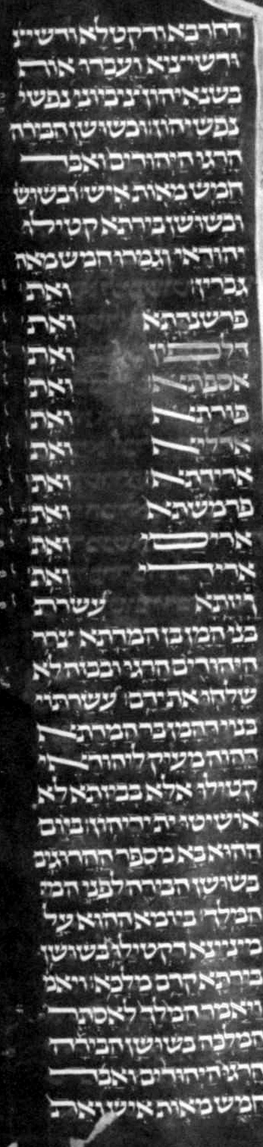 דחרבא ודקטלא ודשיצ
ודשיציא ועבדו
בשנאיהון ניבוני נפשי
נפשיהון ובשושן הבירה
הרגו היהודים ואבד
חמש מאות איש ובשוש
ובשושן בירתא קטילו
יהודאי וגמרו חמש מאה
גברין ואת
פרשנדתא ואת
דלפון ואת
אספתא ואת
פורתא ואת
אדליא ואת
ארידתא ואת
פרמשתא ואת
אריסי ואת
ארידי ואת
ויזתא עשרת
בני המן בן המדתא צרר
היהודים הרגו ובבזה לא
שלחו את ידם עשרתי
בנוי דהמן בר המדתא
דהוה מעיק ליהודאי
קטילו אלא בביזתא לא
אושיטו ית ידיהון ביום
ההוא בא מספר ההרוגים
בשושן הבירה לפני המ
המלך ביומא ההוא על
מיניינא דקטילו בשושן
בירתא קדם מלכא ויאמ
ויאמר המלך לאסתר
המלכה בשושן הבירה
הרגו היהודים ואבד
חמש מאות איש ואת